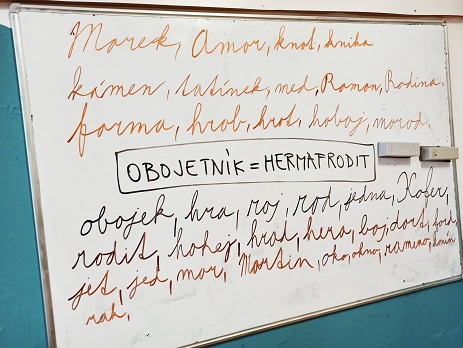 Marek, Amor, knot, kniha
kámen, tatínek, med, Roman, Rodina
forma, hrob, hrot, hoboj, morod,
OBOJETNÍK = HERMAFRODIT
obojek, hra, roj, rod, jedna, Kofer,
rodit, hokej, hrad, hera, boj, dort, ford,
jet, jed, mor, Martin, oko, okno, rameno,
rak,